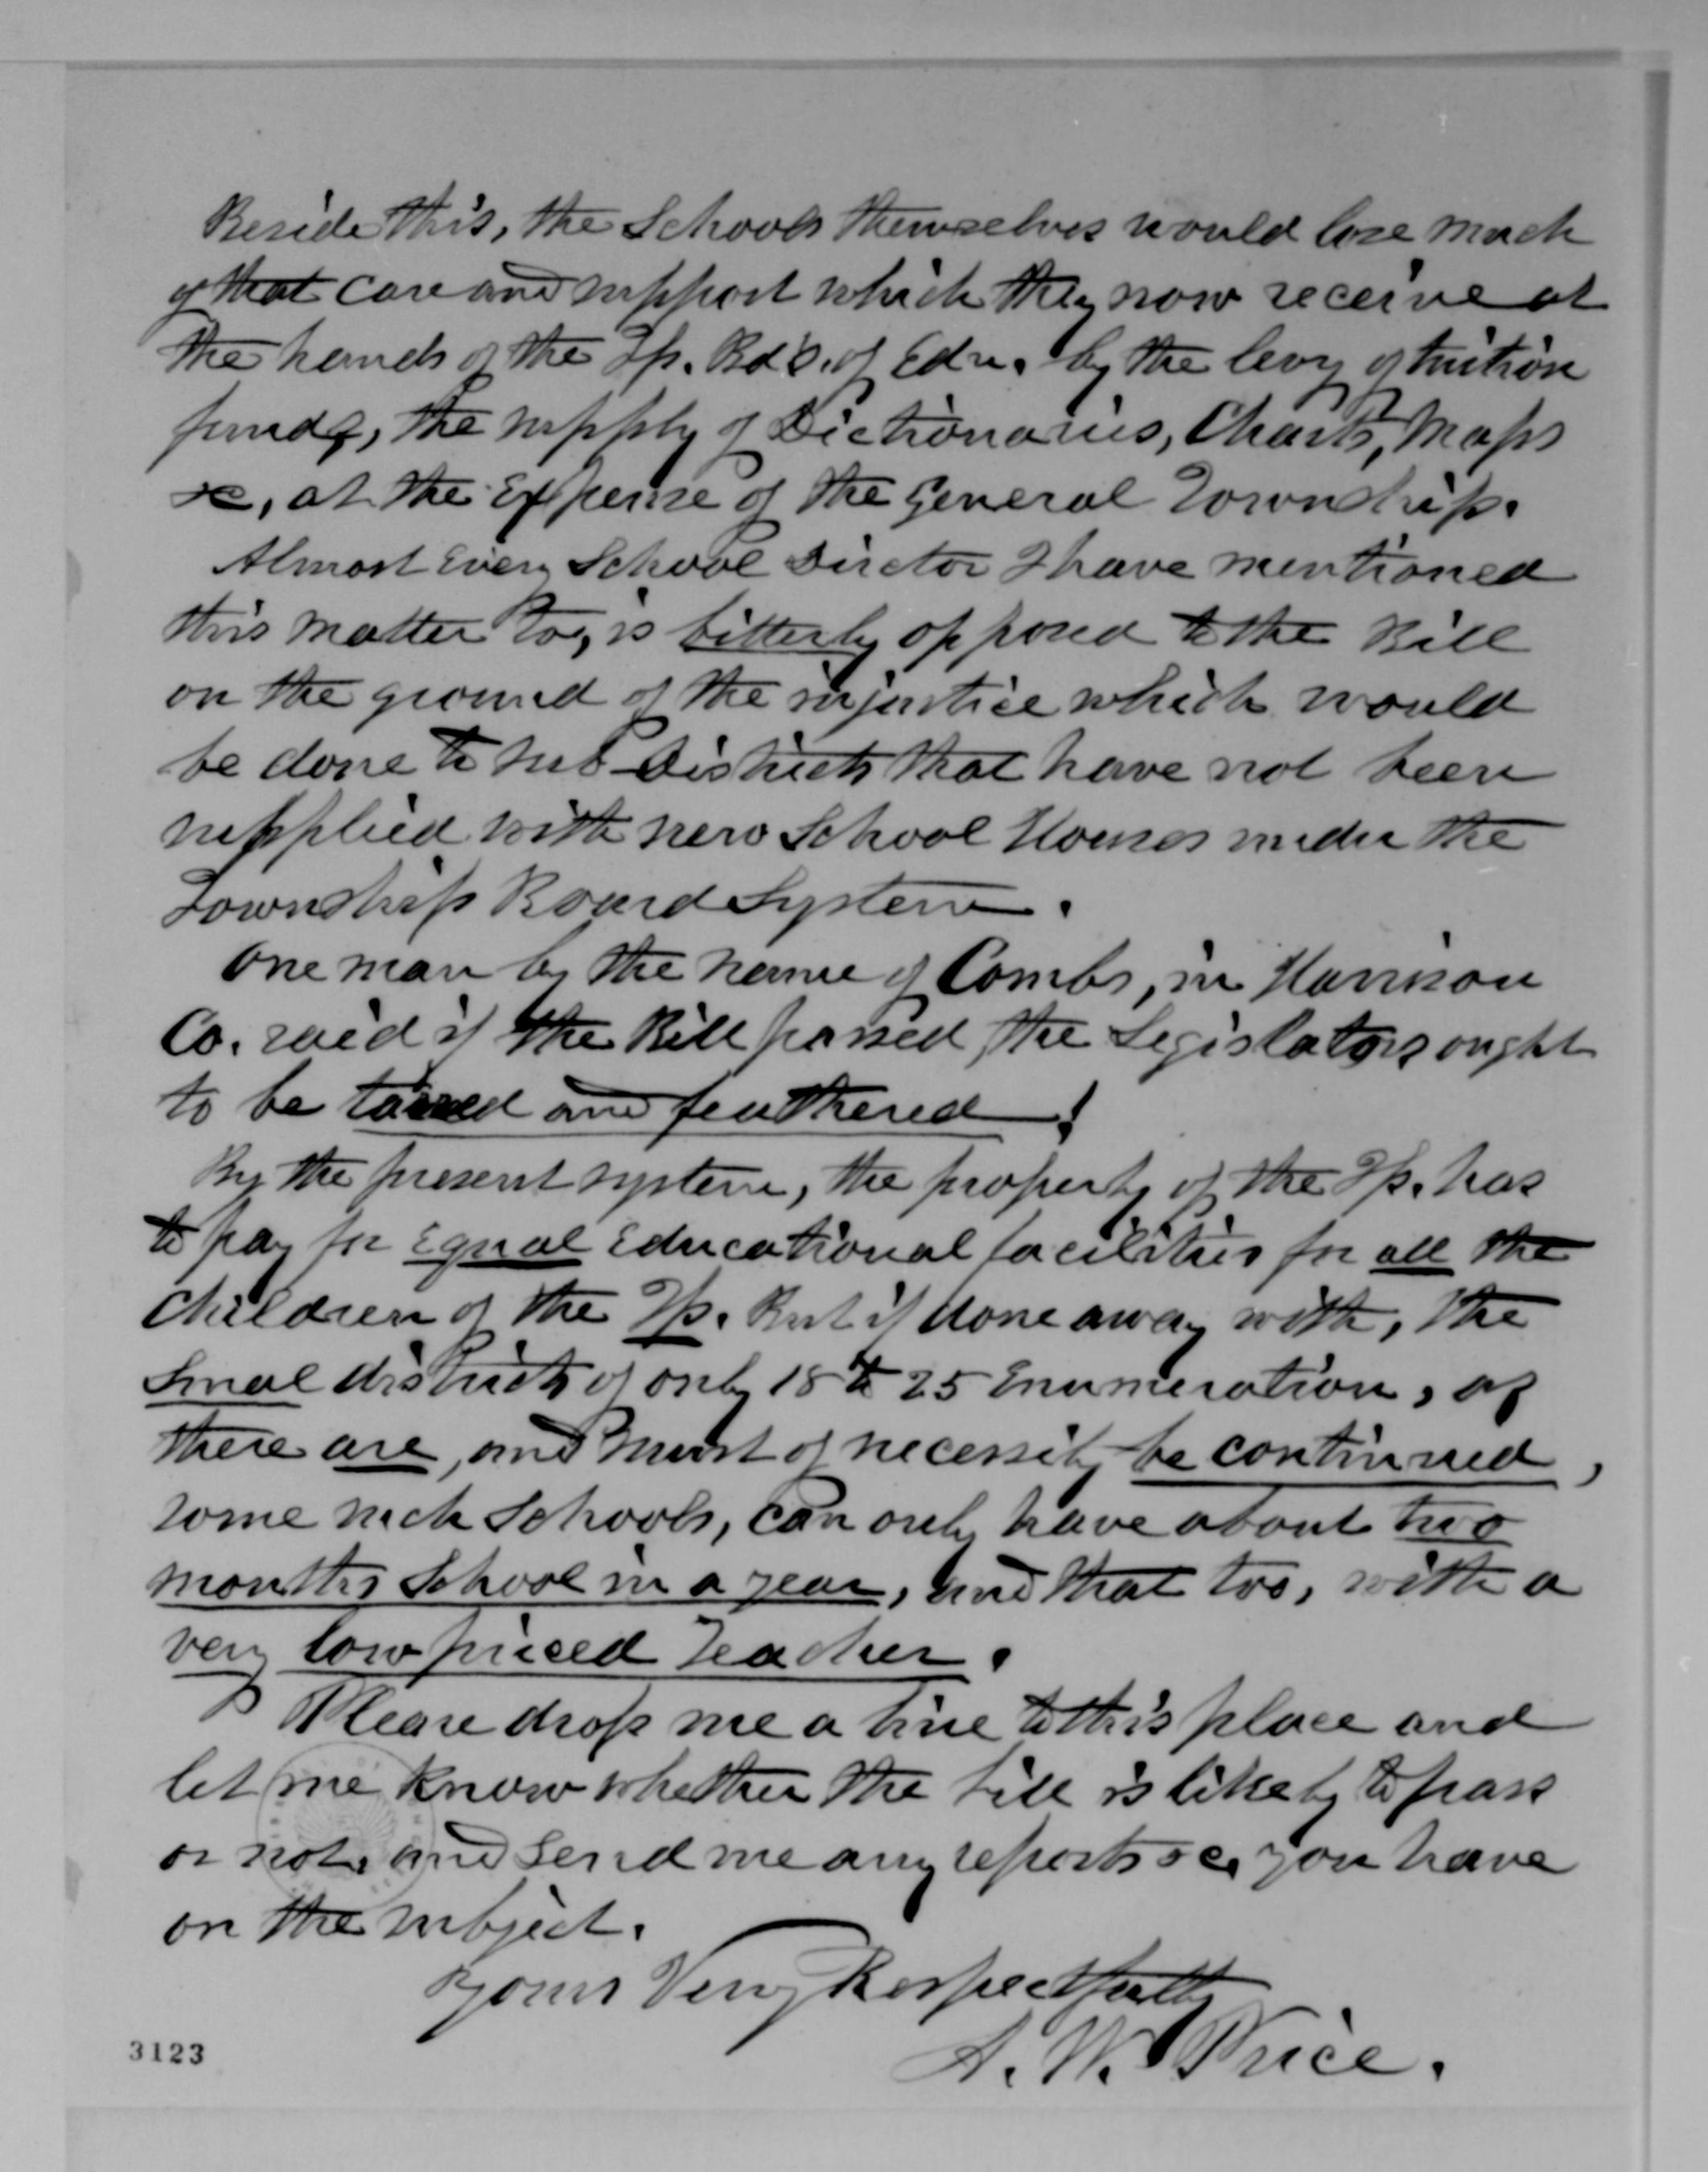 Beside this, the Schools themselves would lose much
of that care and support which they now receive at
the hands of the Tp. Bd's. of Edn. by the levy of tuition
funds, the supply of Dictionaries, Charts, Maps
&c, at the Expense of the General Township.
Almost Every School Director I have mentioned
this matter to, is bitterly opposed to the Bill
on the ground of the injustice which would
be done to sub-Districts that have not been
supplied with new School Houses under the
Township Board System.
One man by the name of Combs, in Harrison
Co. said if the Bill passed, the Legislators ought
to be tarred and feathered!
By the present system, the property of the Tp. has
to pay for Equal Educational facilities for all the
Children of the Tp. But if done away with, the
Small districts of only 18 to 25 Enumeration, as
there are, and must of necessity be continued,
some such Schools, can only have about two
months School in a year, and that too, with a
very low priced Teacher.
Please drop me a line to this place and
let me know whether the bill is likely to pass
or not, and send me any reports &c. you have
on the subject.
Yours Very Respectfully
A. W. Price.
3123